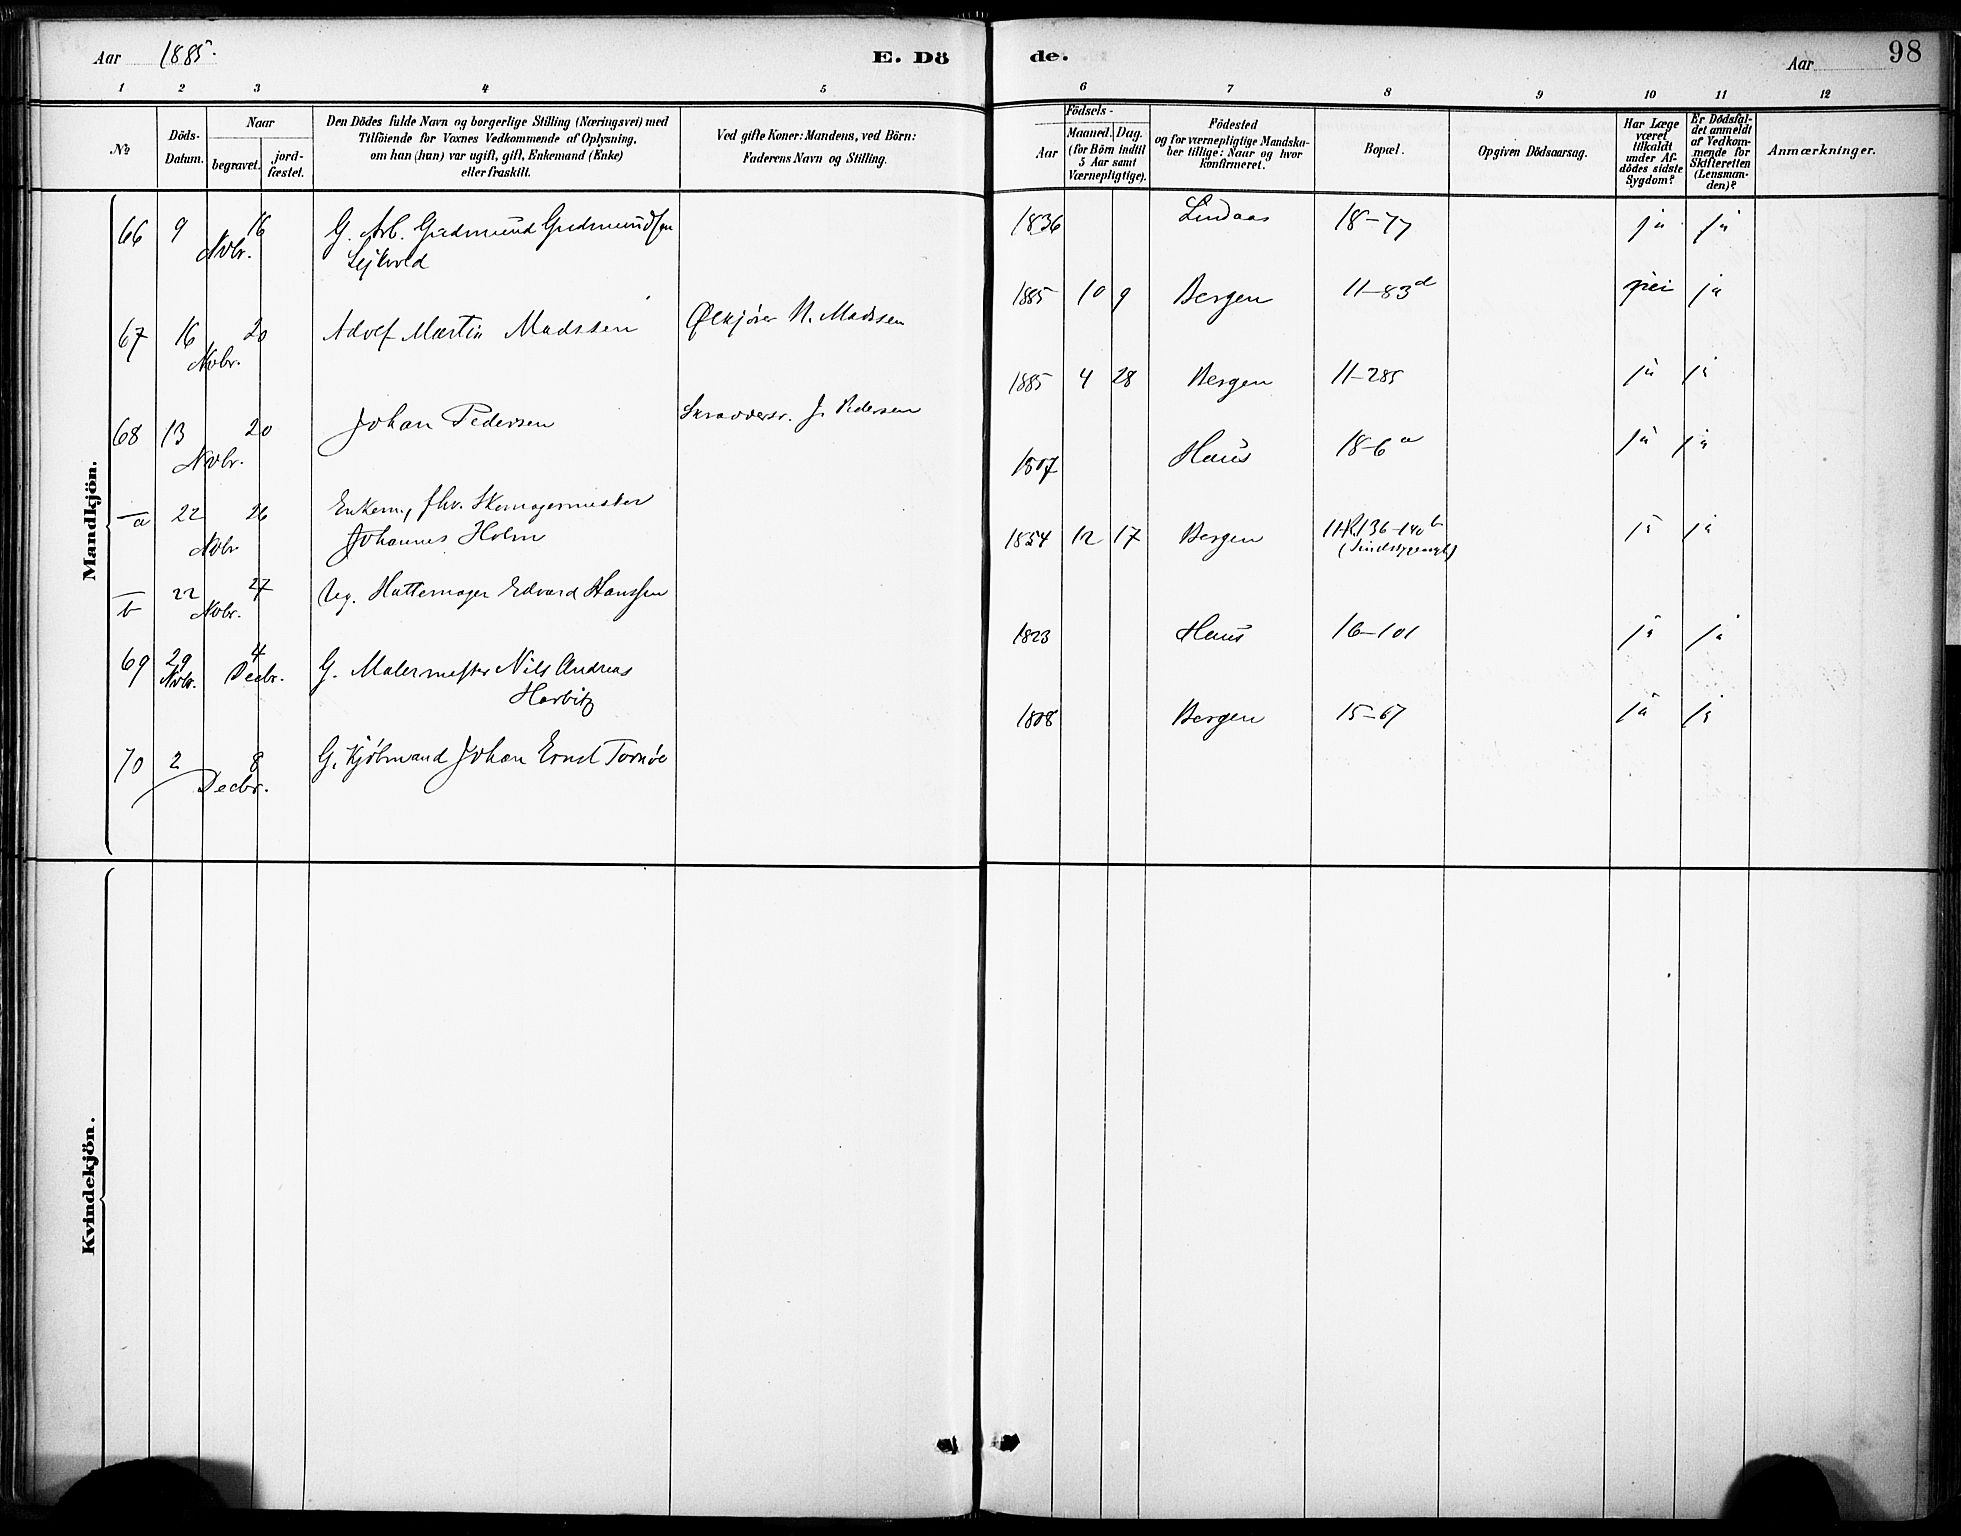 Aar 1885.
E. Dö
de.
Aar
98
1 2 3 4 5
6 7 8 9 10 11 12
No
Döds-
Datum.
Naar
begravet.
jord-
fæstet.
Den Dödes fulde Navn og borgerlige Stilling (Næringsvei) med
Tilföiende for Voxnes Vedkommende af Oplysning,
om han (hun) var ugift, gift, Enkemand (Enke)
eller fraskilt.
Ved gifte Koner: Mandens, ved Börn:
Faderens Navn og Stilling.
Födsels-
Aar
Maaned. Dag.
(for Börn indtil
5 Aar samt
Værnepligtige).
Födested
og for værnepligtige Mandska-
ber tillige: Naar og hvor
konfirmeret.
Bopæl.
Opgiven Dödsaarsag.
Har Læge
været
tilkaldt
under Af-
dödes sidste
Sygdom?
Er Dödsfal-
det anmeldt
af Vedkom-
mende for
Skifteretten
(Lensman-
den)?
Anmærkninger.
Mandkjön.
66 9 16 G. Arb. Gudmund Gudmundsen 1836 Lindaas 18-77 ja ja
Novbr.
67 16 20 Adolf Martin Madssen Ølkjører N. Madssen 1885 10 9 Bergen 11-83d nei ja
Novbr.
68 13 20 Johan Pedersen J. Pedersen 1885 4 28 Bergen 11-285 ja ja
Novbr.
— a 22 26 Enkem., fhv. Skomagermester 1807 Haus 18-6a ja ja
Novbr. Johannes Holm
— b 22 27 Ug. Hattemager Edvard Hanssen 1854 12 17 Bergen 136-140b ja ja
Novbr.
69 29 4 G. Malermester Nils Andreas 1823 Haus 16-101 ja ja
Novbr. Decbr. Harbitz
70 2 8 G. Kjøbmand Johan Ernst Tornøe 1808 Bergen 15-67 ja ja
Decbr.
Kvindekjön.